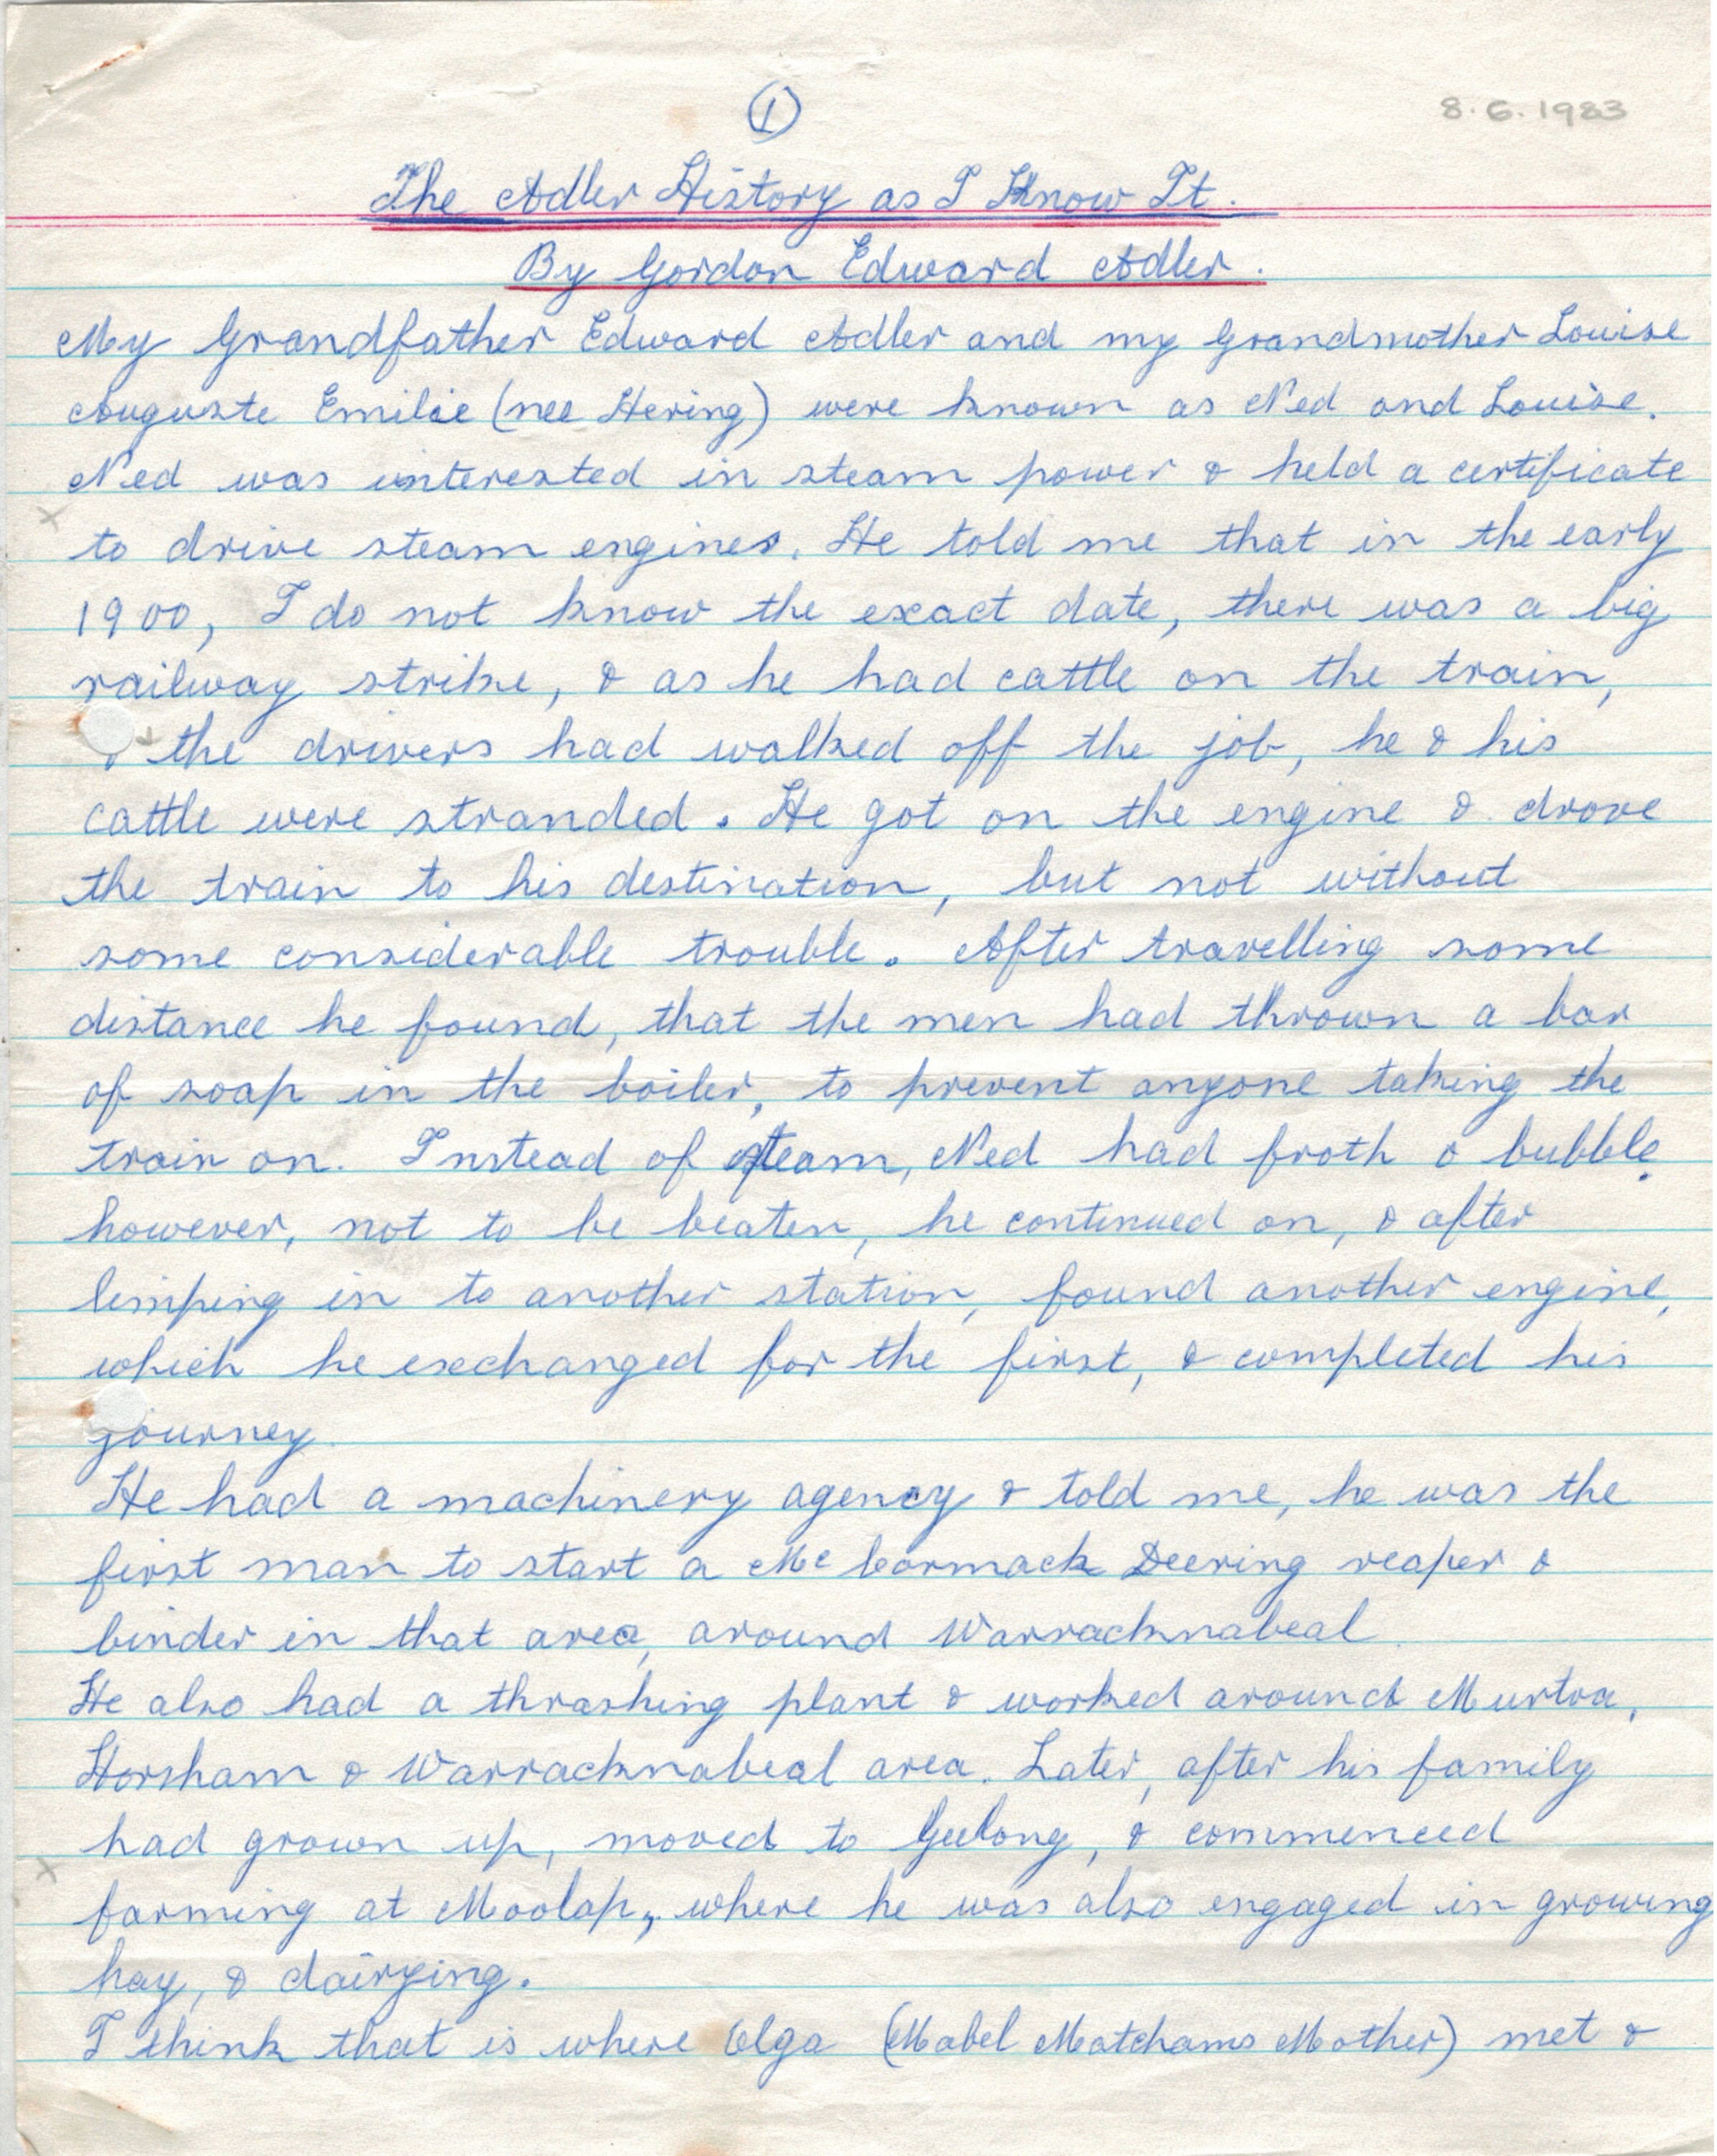 1
8.6.1983
The Adler History as I Know It.
By Gordon Edward Adler.
My Grandfather Edward Adler and my Grandmother Louise
Auguste Emilie (nee Hering) were known as Ned and Louise.
Ned was interested in steam power & held a certificate
x
to drive steam engines. He told me that in the early
1900, I do not know the exact date, there was a big
railway strike, & as he had cattle on the train,
& the drivers had walked off the job, he & his
cattle were stranded. He got on the engine & drove
the train to his destination, but not without
some considerable trouble. After travelling some
distance he found, that the men had thrown a bar
of soap in the boiler, to prevent anyone taking the
train on. Instead of steam, Ned had froth & bubble.
however, not to be beaten, he continued on, & after
limping in to another station, found another engine,
which he exchanged for the first, & completed his
journey.
He had a machinery agency & told me, he was the
first man to start a McCormack Deering reaper &
binder in that area, around Warracknabeal.
He also had a thrashing plant & worked around Murtoa,
Horsham & Warracknabeal area. Later, after his family
had grown up, moved to Geelong, & commenced
x
farming at Moolap, where he was also engaged in growing
hay, & dairying.
I think that is where Olga (Mabel Matchams Mother) met &